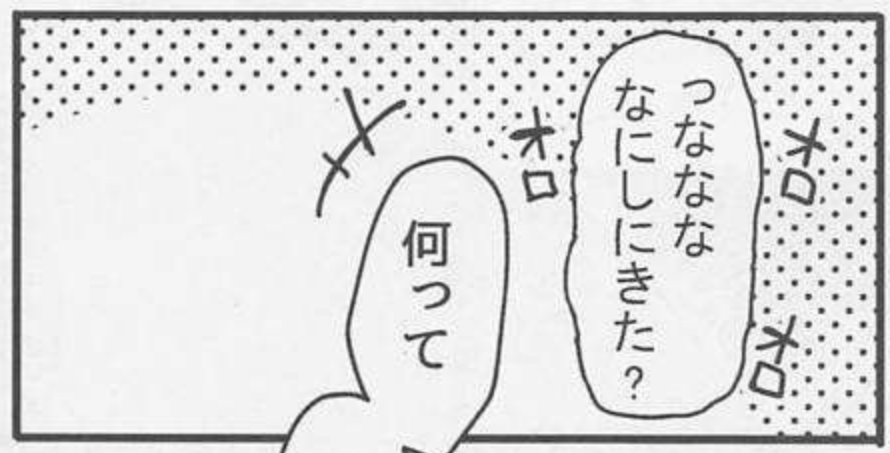 っななな
なにしにきた?
オロ
オロ
オロ
何って